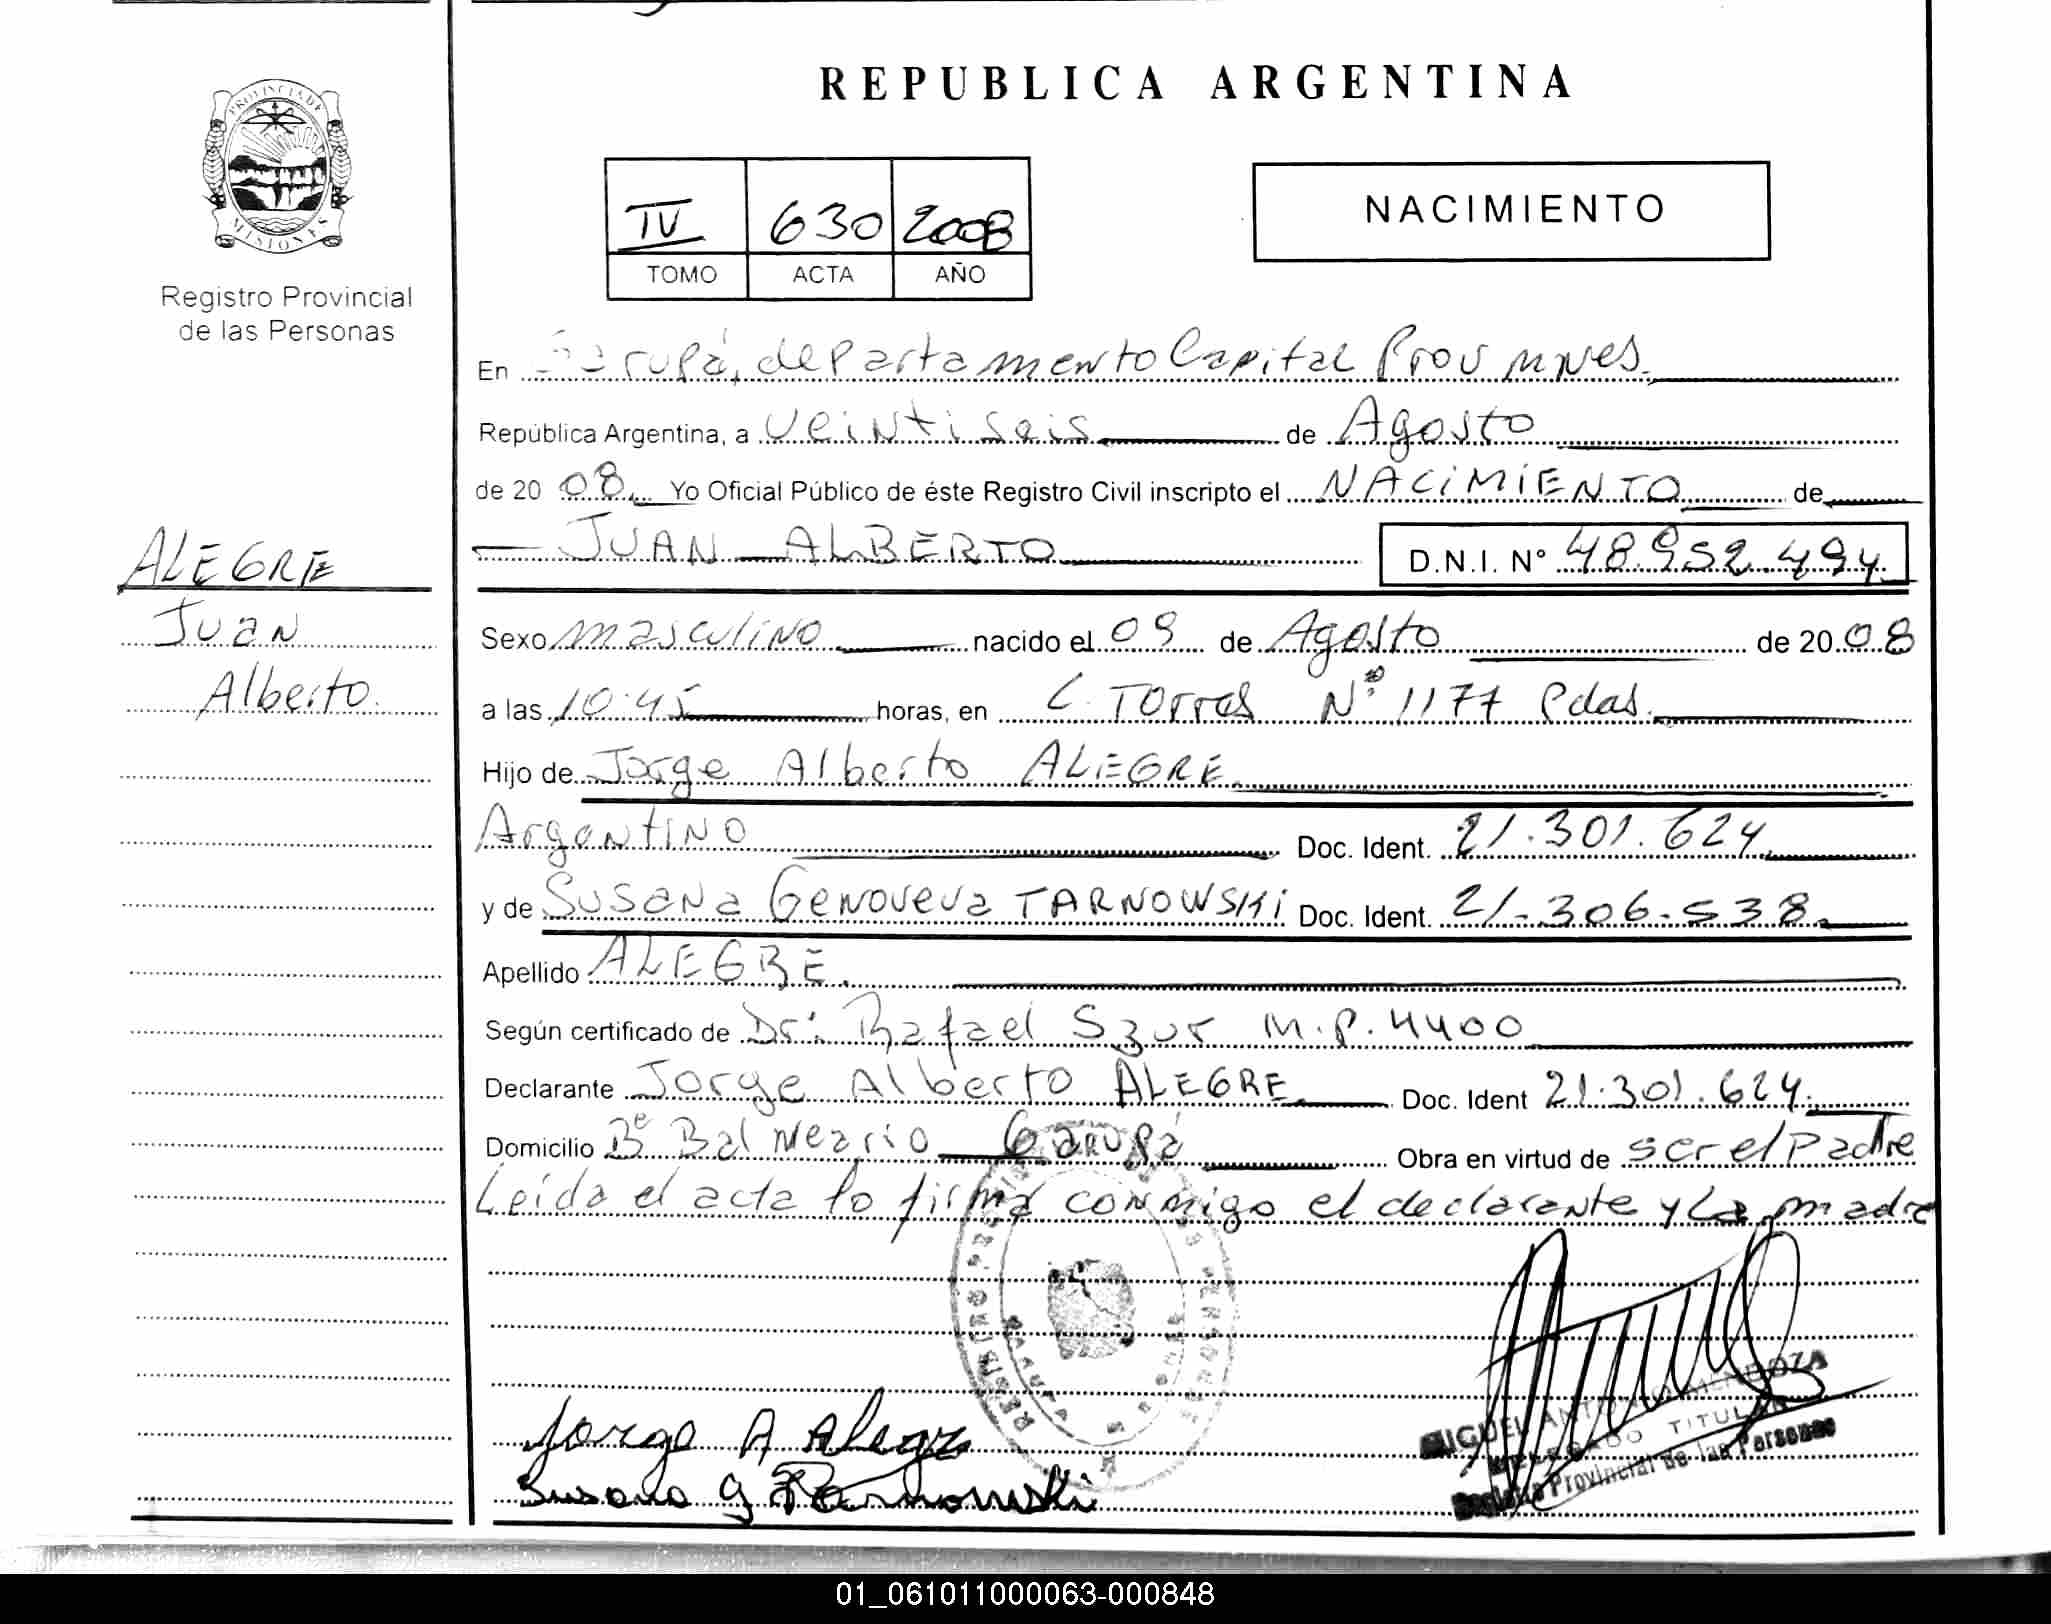 REPUBLICA ARGENTINA
PROVINCIA DE
MISIONES
Registro Provincial
de las Personas
IV 630 2008
TOMO ACTA AÑO
NACIMIENTO
En Garupá, departamento Capital Prov mnes.
República Argentina, a veintiseis de Agosto
de 20 08. Yo Oficial Público de éste Registro Civil inscripto el NACIMIENTO de
JUAN ALBERTO D.N.I. N° 48.952.494.
ALEGRE
Juan
Alberto.
Sexo masculino nacido el 09 de Agosto de 20 08
a las 10:45 horas, en C. Torres N° 1177 Pdas.
Hijo de Jorge Alberto ALEGRE.
Argentino Doc. Ident. 21.301.624.
y de Susana Genoveva TARNOWSKi Doc. Ident. 21.306.538.
Apellido ALEGRE.
Según certificado de Dr: Rafael Szur M.P. 4400
Declarante Jorge Alberto ALEGRE. Doc. Ident 21.301.624.
Domicilio B° Balneario Garupá Obra en virtud de ser el Padre
Leída el acta lo firma conmigo el declarante y La madre
Jorge A Alegre
Susana G Tarnowski
MIGUEL ANTONIO MENDOZA
DELEGADO TITULAR
Registro Provincial de las Personas
01_061011000063-000848